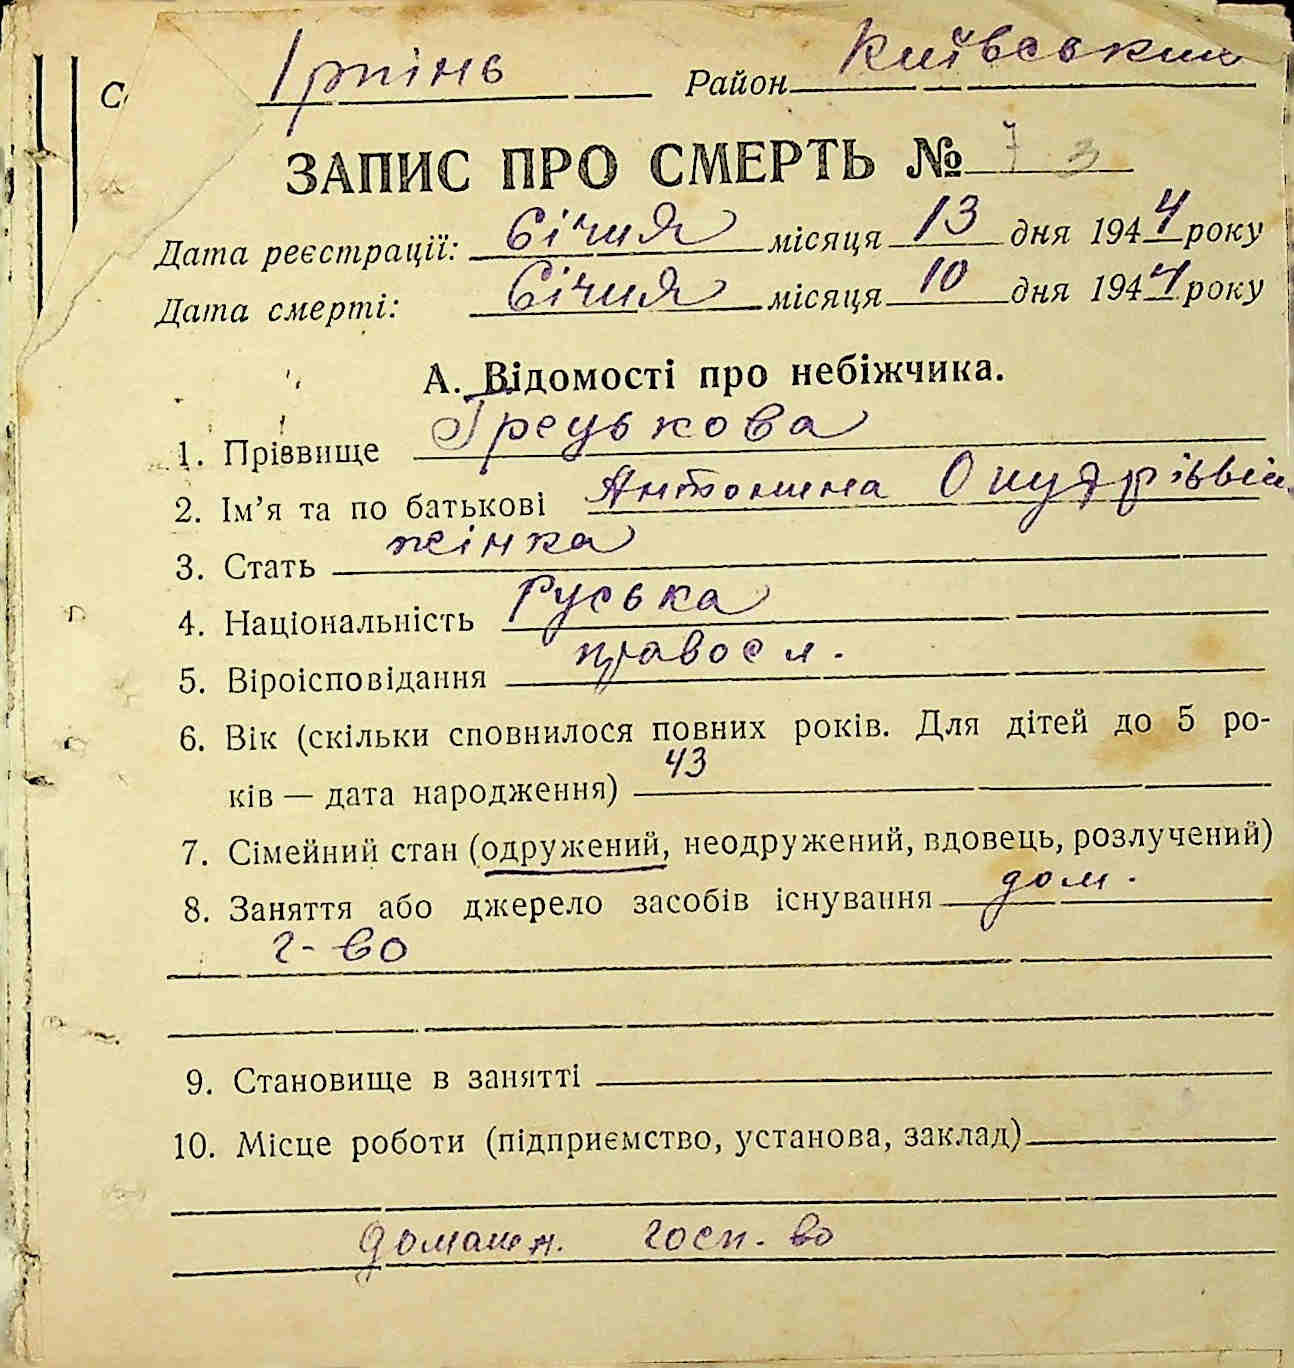 С Ірпінь Район Київський
ЗАПИС ПРО СМЕРТЬ № 73
Дата реєстрації: Січня місяця 13 дня 1944 року
Дата смерті: Січня місяця 10 дня 1944 року
А. Відомості про небіжчика.
1. Прізвище Грецькова
2. Ім’я та по батькові Антонина
3. Стать жінка
4. Національність Руська
5. Віроісповідання правосл.
6. Вік (скільки сповнилося повних років. Для дітей до 5 ро-
ків — дата народження) 43
7. Сімейний стан (одружений, неодружений, вдовець, розлучений)
8. Заняття або джерело засобів існування дом.
г-во
9. Становище в занятті
10. Місце роботи (підприємство, установа, заклад)
домашн. госп-во